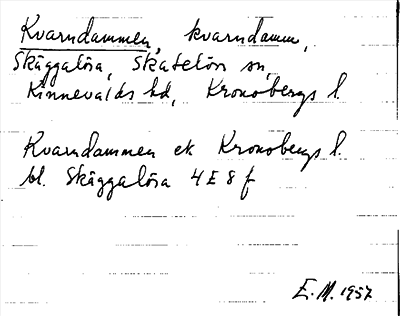 Kvarndammen, kvarndamm,
Skäggalösa, Skatelövs sn,
Kinnevalds hd, Kronobergs l.
Kvarndammen ek Kronobergs l.
bl. Skäggalösa 4E8f
E.M. 1957